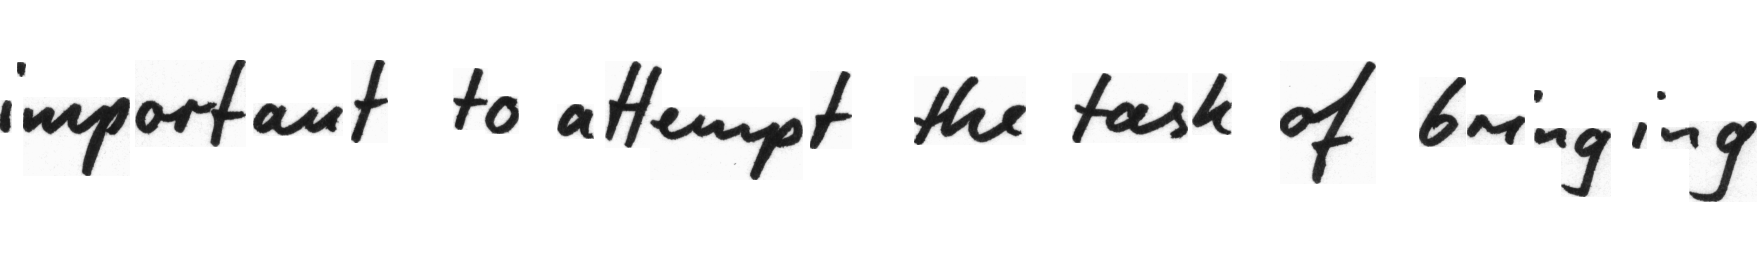 important to attempt the task of bringing